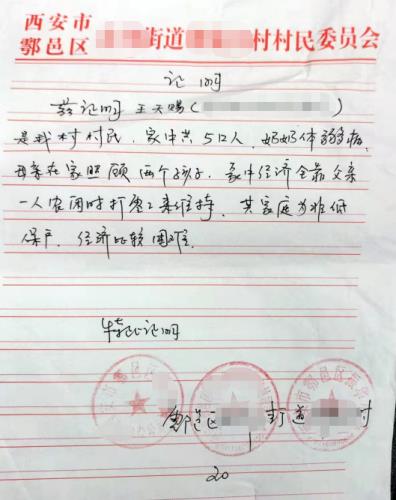 西安市
鄠邑区 街道 村村民委员会
证明
兹证明王天赐(
是我村村民,家中共5口人,奶奶体弱病,
母亲在家照顾两个孩子,家中经济全靠父亲
一人农闲时打零工来维持,其家庭为非低
保户,经济比较困难.
特此证明
鄠邑区 街道 村
20